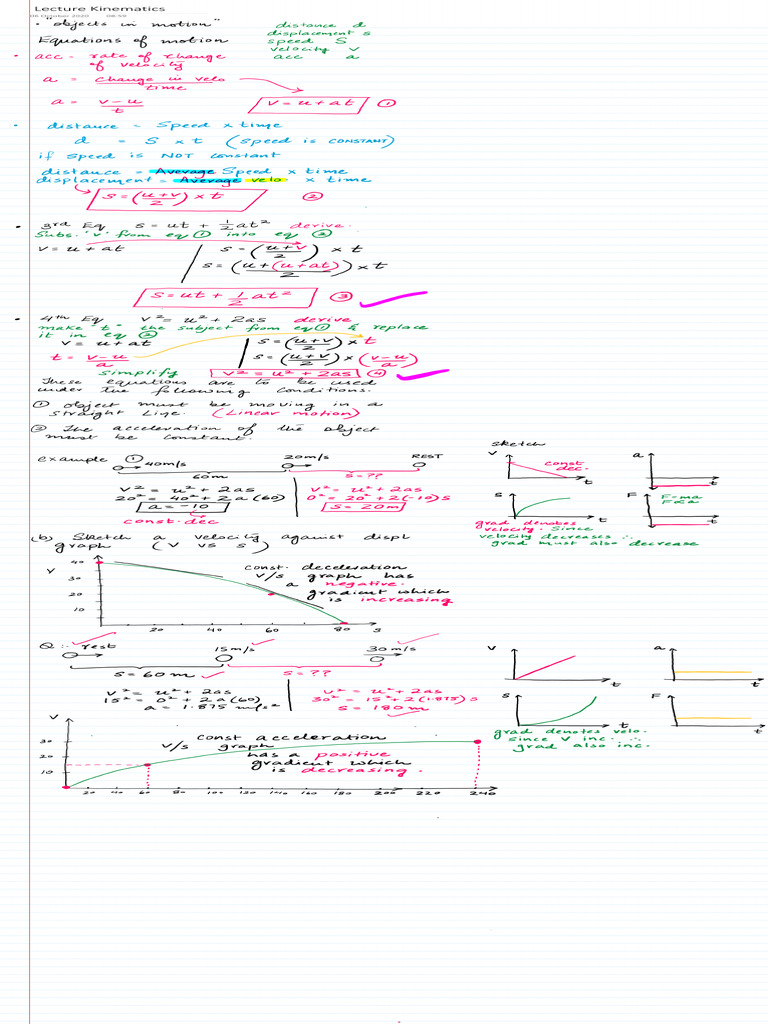 Lecture Kinematics
06 October 2020 08:59
• "objects in motion"
Equations of motion
distance d
displacement s
speed S
velocity v
acc a
• acc = rate of change
of velocity
a = change in velo / time
a = v-u / t
v = u + at ①
• distance = Speed × time
d = S × t (speed is CONSTANT)
if speed is NOT constant
distance = Average Speed × time
displacement = Average velo × time
s = (u+v / 2) × t ②
• 3rd Eq s = ut + 1/2 at² derive.
Subs. 'v' from eq ① into eq ②
v = u + at
s = (u+v / 2) × t
s = (u+(u+at) / 2) × t
s = ut + 1/2 at² ③
• 4th Eq v² = u² + 2as derive
make "t" the subject from eq ① & replace
it in eq ②
v = u + at
s = (u+v / 2) × t
t = v-u / a
s = (u+v / 2) × (v-u / a)
simplify v² = u² + 2as ④
These equations are to be used
under the following conditions.
① object must be moving in a
straight line. (Linear motion)
② The acceleration of the object
must be constant.
example ① 40m/s 20m/s REST
60m s=??
v² = u² + 2as
20² = 40² + 2a(60)
a = -10
const. dec
v² = u² + 2as
0² = 20² + 2(-10)s
s = 20m
sketch
v const dec. t
a t
s t
F F=ma F∝a t
grad denotes
velocity. Since
velocity decreases ∴
grad must also decrease
(b) Sketch a velocity against displ
graph (v vs s)
v 40 30 20 10
20 40 60 80 s
const. deceleration
v/s graph has
a negative
gradient which
is increasing
Q:- rest 15m/s 30m/s
s = 60m s = ??
v² = u² + 2as
15² = 0² + 2a(60)
a = 1.875 m/s²
v² = u² + 2as
30² = 15² + 2(1.875)s
s = 180m
v t
a t
s t
F t
grad denotes velo.
since v inc. ∴
grad also inc.
v 30 20 10
const acceleration
v/s graph
has a positive
gradient which
is decreasing.
20 40 60 80 100 120 140 160 180 200 220 240